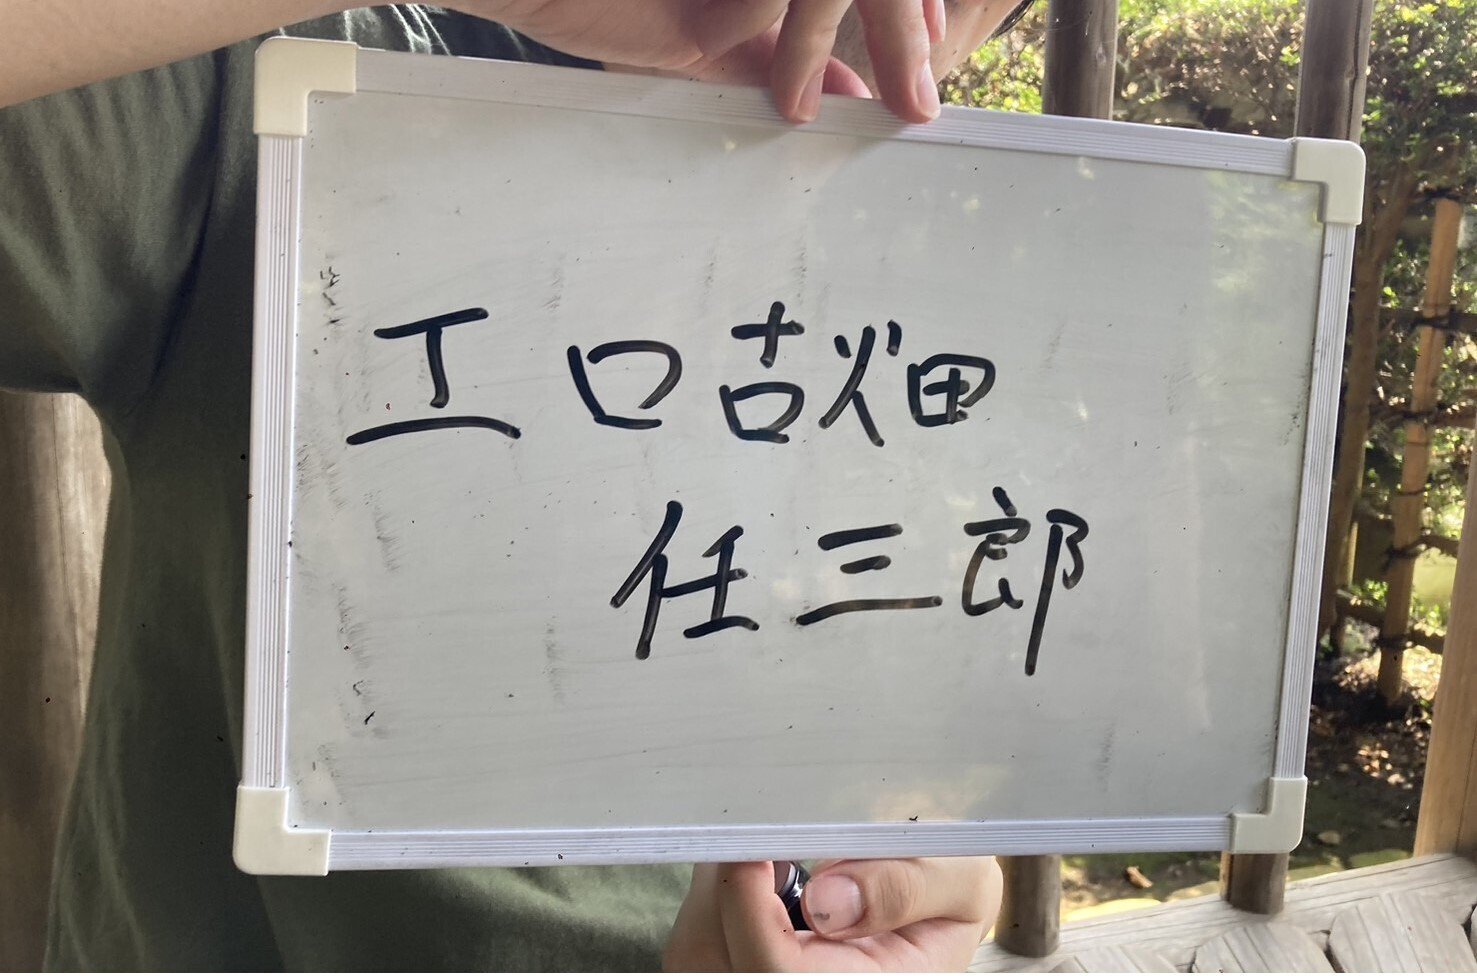 エロ古畑
任三郎